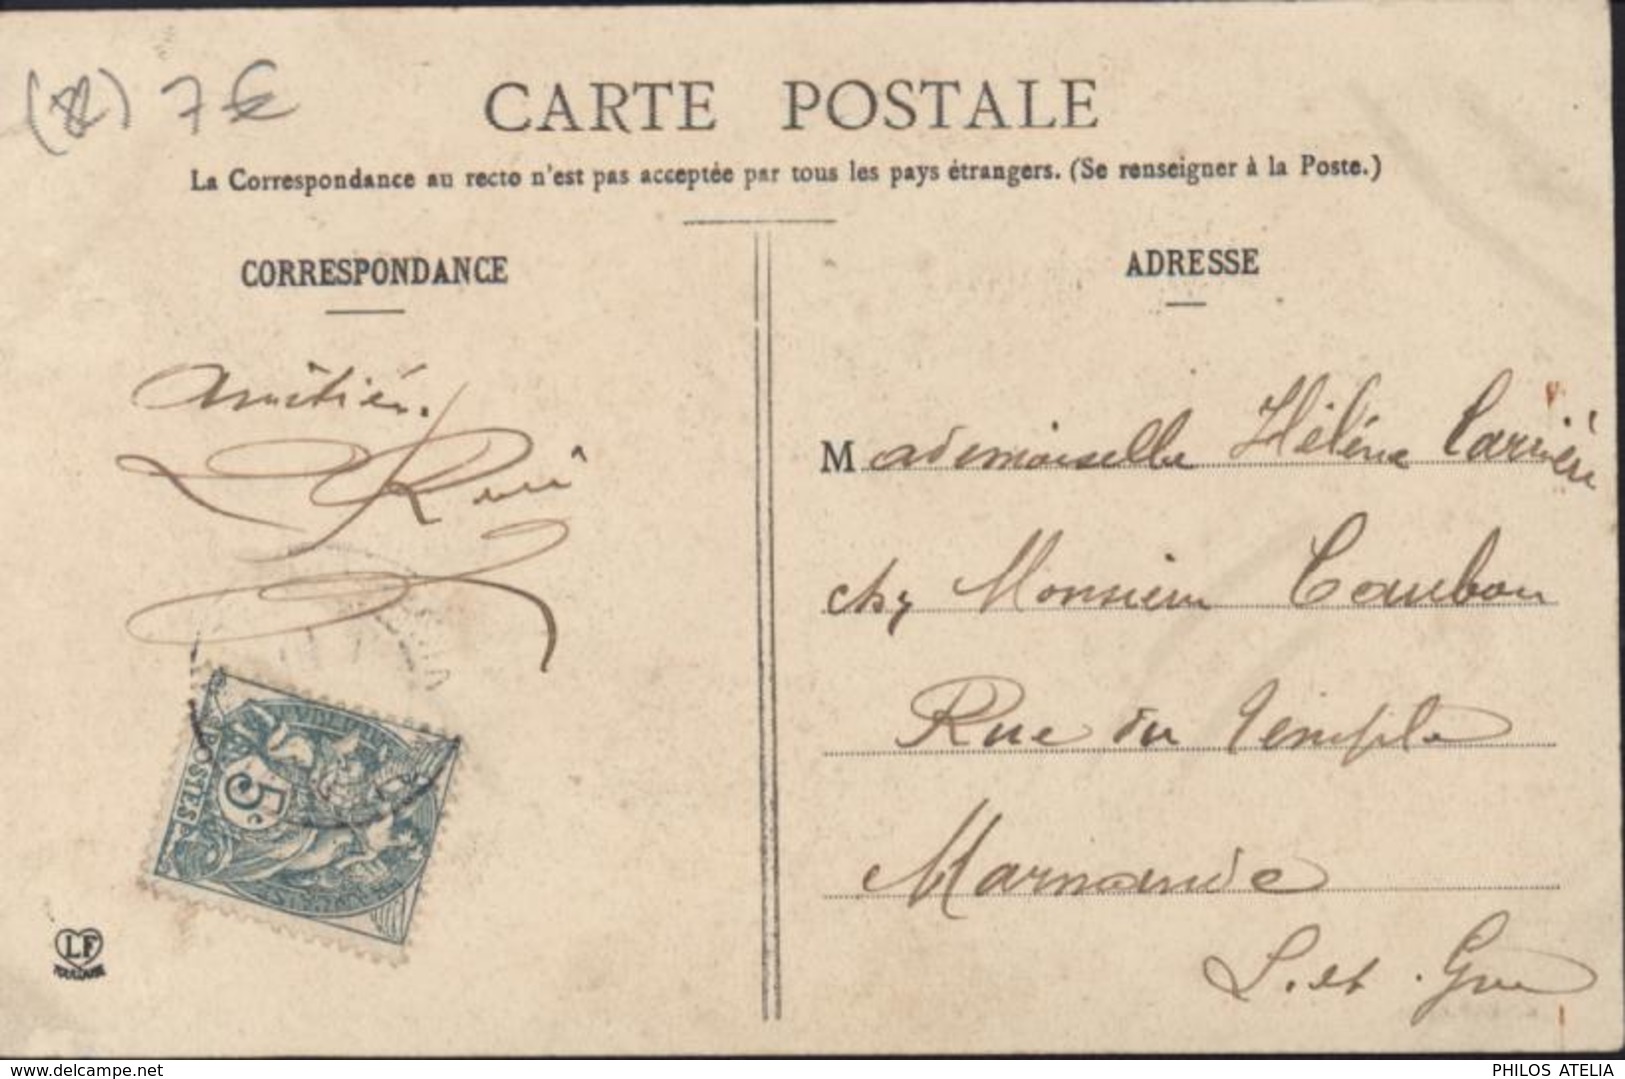 (82) 7€
CARTE POSTALE
La Correspondance au recto n'est pas acceptée par tous les pays étrangers. (Se renseigner à la Poste.)
CORRESPONDANCE
ADRESSE
Amitiés.
Mademoiselle Hélène Carrière
chez Monsieur
Rue du Temple
Marmande
L. et Gne
5c
POSTES
LF
TOULOUSE
www.delcampe.net
PHILOS ATELIA